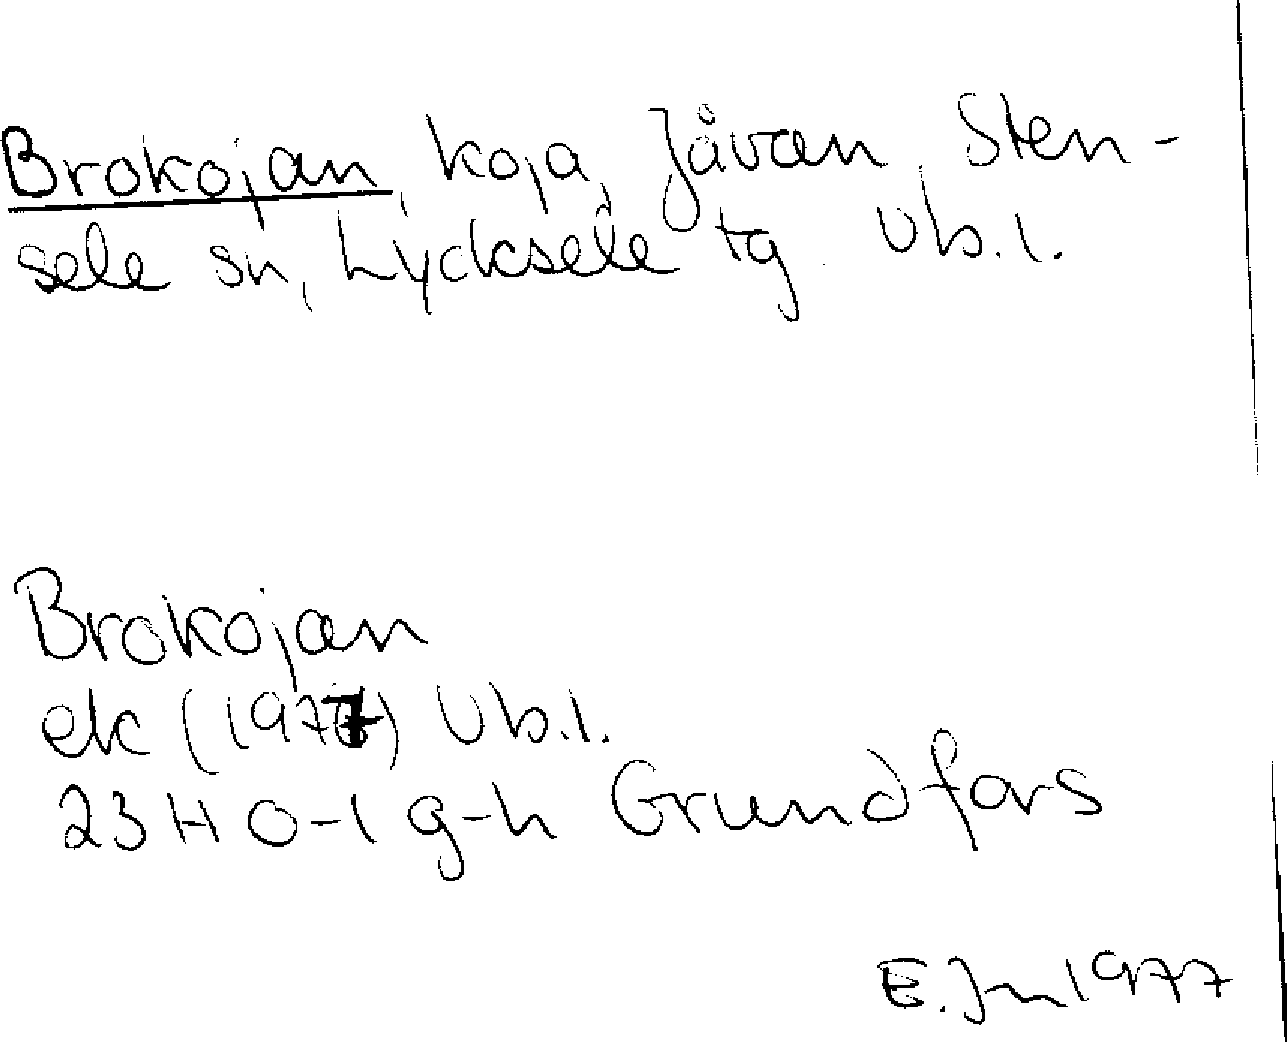 Brokojan, koja, Jåvan, Sten-
sele sn, Lycksele tg. Vb.l.
Brokojan
ek (1977) Vb.l.
23H 0-1 g-h Grundfors
E. Jn 1977